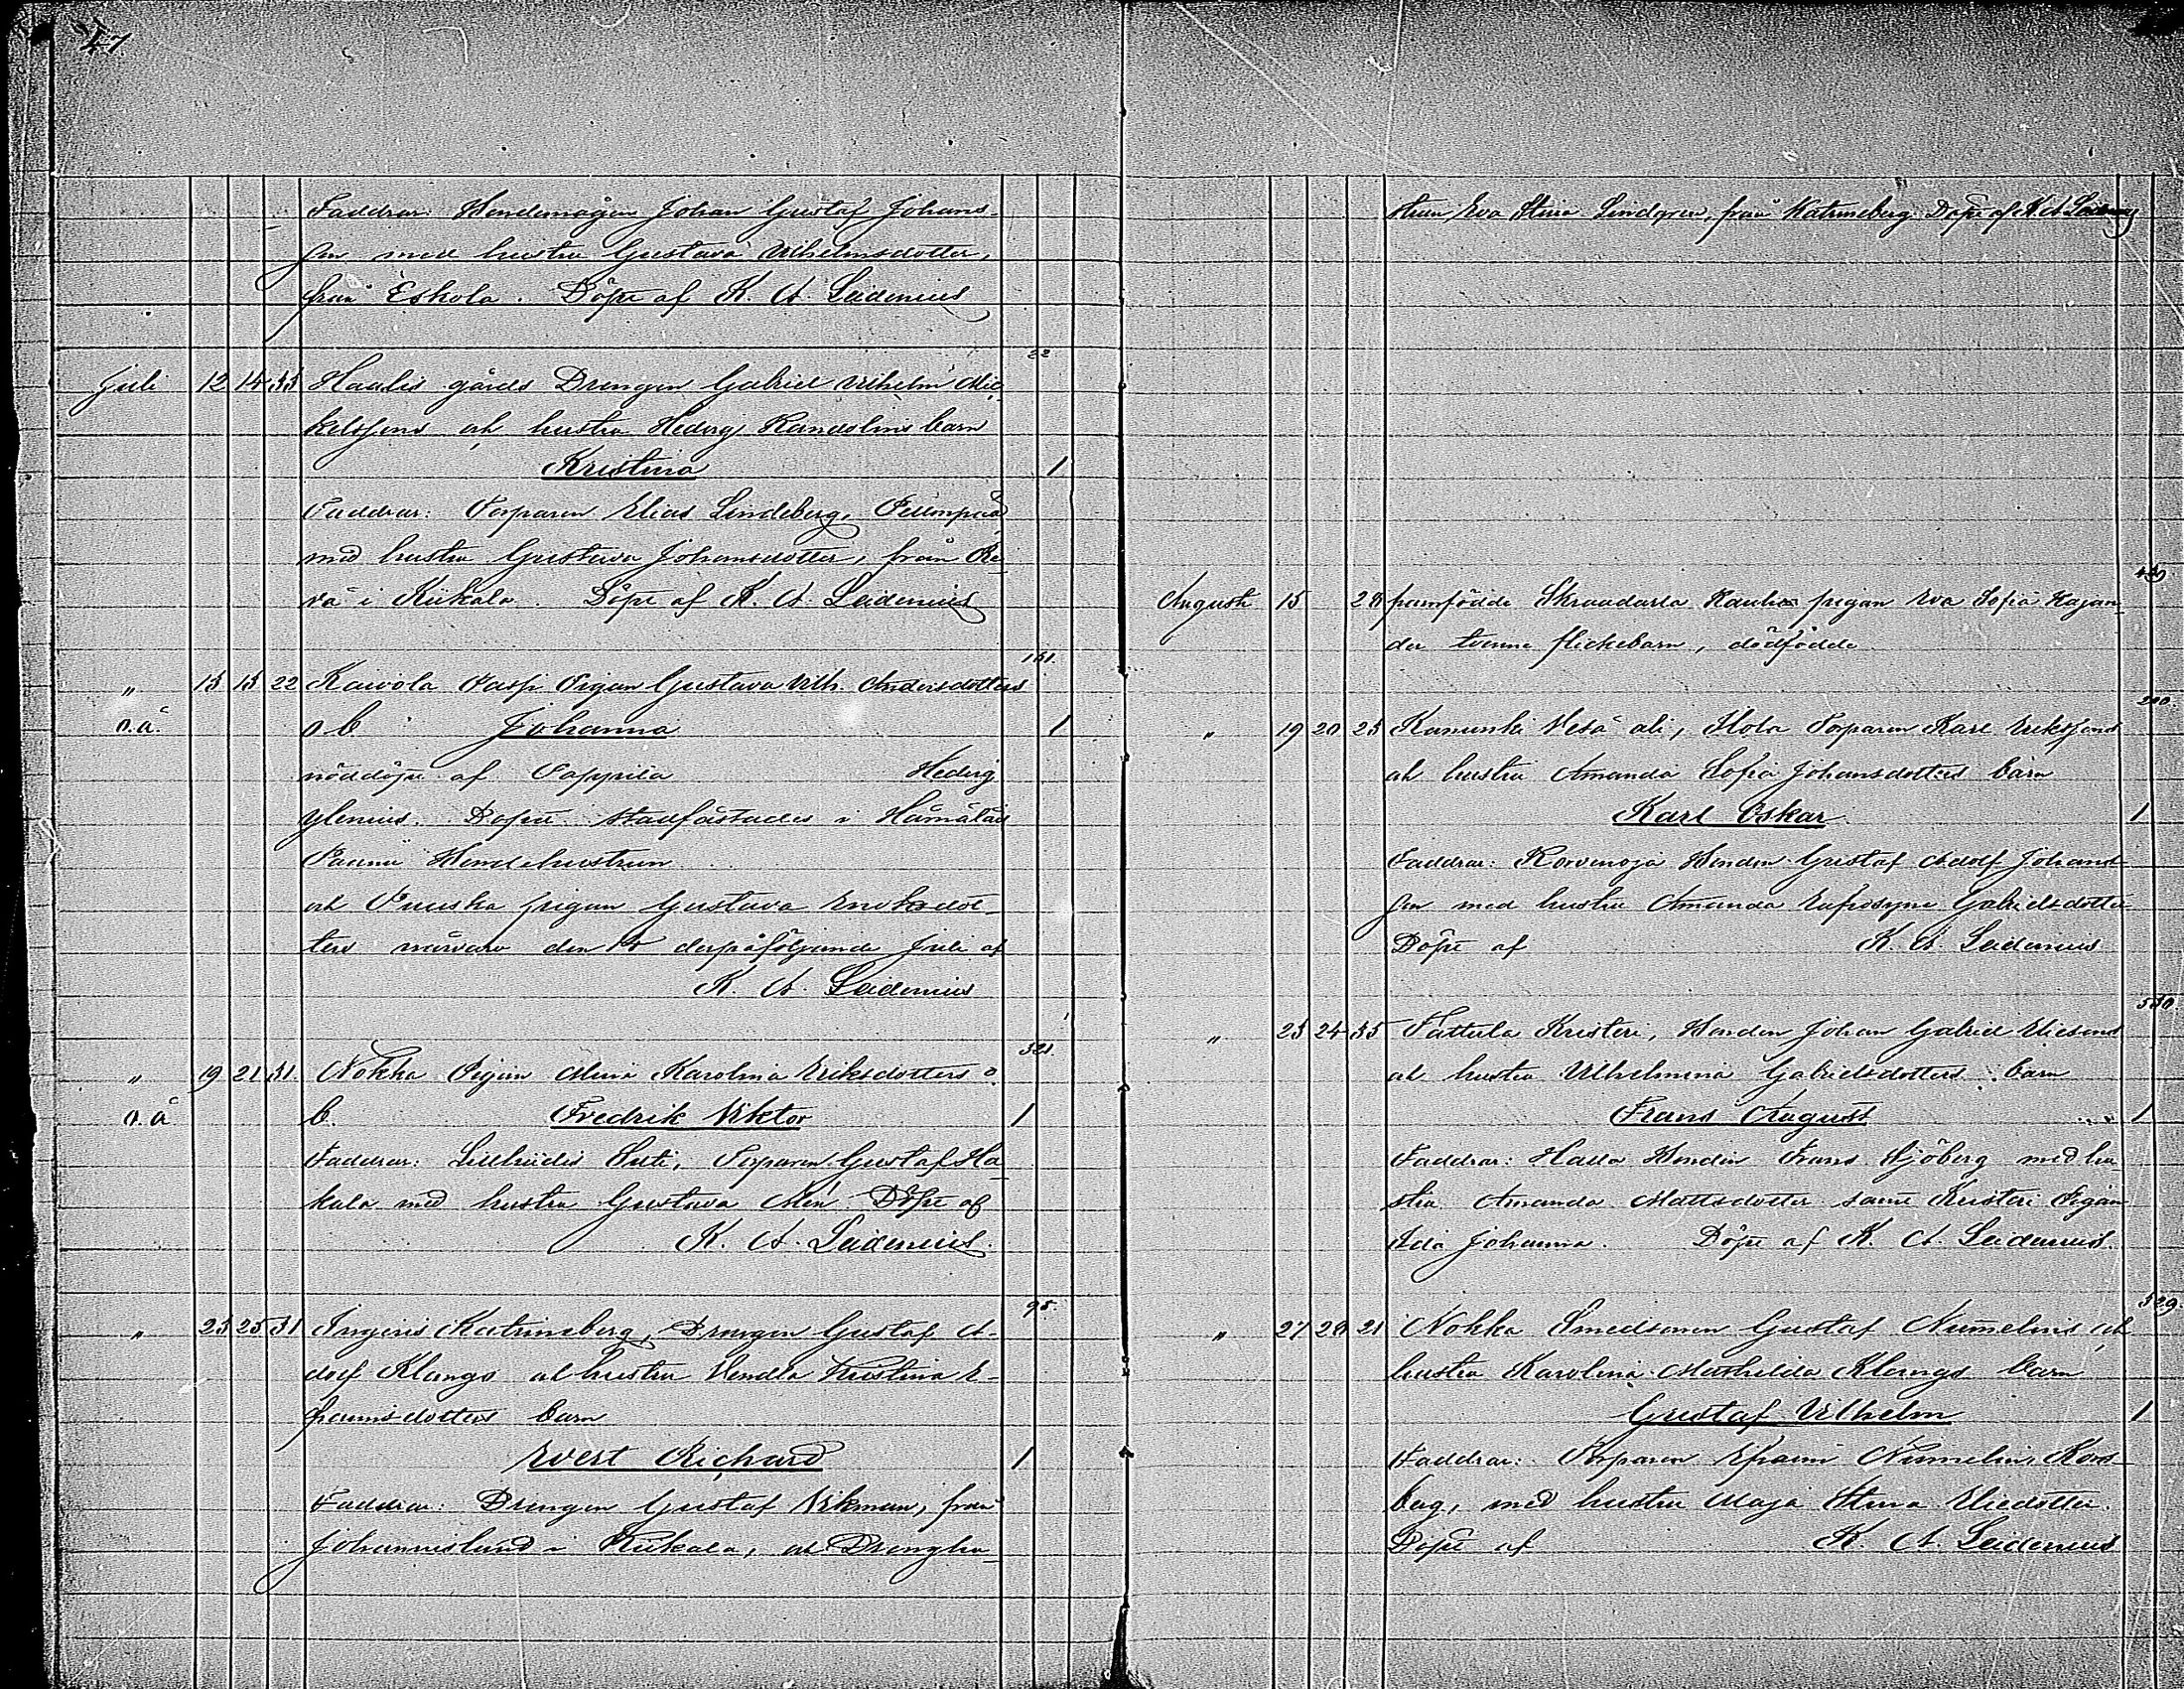 47
Faddrar: Hendemågen Johan Gustaf Johans-
son med hustru Gustava Vilhelmsdotter,
från Eskola. Döpt af K. A. Leidenius
22
Juli 12 14 33 Haalis gårds Drengen Gabriel Vilhelm Mic-
kelssons och hustru Hedvig Randelins barn
Kristina 1
Faddrar: Torparen Elias Lindeberg,
med hustru Gustava Johansdotter, från Re-
vä i Kiikala. Döpt af K. A. Leidenius
151.
" 13 15 22 Kaivola Pigan Gustava Vilh. Andersdotters
o.ä. o b Johanna 1
nöddöpt af Hedvig
Ylenius. Dopet stadfästades i
Hendehustrun
och Puuska pigan Gustava Enoksdot-
ters närvaro den derpåföljande Juli af
K. A. Leidenius
321.
" 19 21 31. Nokka Pigan Maria Karolina Eriksdotters o.
o.ä b. Fredrik Viktor 1
Faddrar: Torparen Gustaf Ha-
kala med hustru Gustava Döpt af
K. A. Leidenius.
95.
" 23 25 31 Ingeris Katrineberg, Drengen Gustaf A-
dolf Klangs och hustru Vendla Kristina E-
fraimsdotters barn
Evert Richard 1
Faddrar: Drengen Gustaf Vikman, från
Johannislund i Kiikala, och Drenghu-
strun Eva Stina Lindgren, från Katrineberg. Döpt af K. A. Leidenius
Augusti 15 28 framfödde Skraadarla pigan Eva Sofia Hajan-
der tvenne flickebarn, dödfödde
200.
" 19 20 23 Kanunki Vesa ali, Torparen Karl Erikssons
och hustru Amanda Sofia Johansdotters barn
Karl Oskar 1
Faddrar: Korvenoja Henden Gustaf Adolf Johans-
son med hustru Amanda Eufrosyne Gabrielsdotter
Döpt af K. A. Leidenius
530.
" 23 24 35 Tattula Kristeri, Henden Johan Gabriel Eliesons
och hustru Vilhelmina Gabrielsdotters barn
Frans August 1
Faddrar: Henden Frans Sjöberg med hu-
stru Amanda Mattsdotter samt Kristeri Pigan
Ida Johanna. Döpt af K. A. Leidenius.
329
" 27 28 21 Nokka Smedsonen Gustaf Numelins och
hustru Karolina Mathilda Klangs barn
Gustaf Vilhelm 1
Faddrar: Torparen Efraim Numelin, Kors-
berg, med hustru Maja Stina Eliedotter.
Döpt af K. A. Leidenius